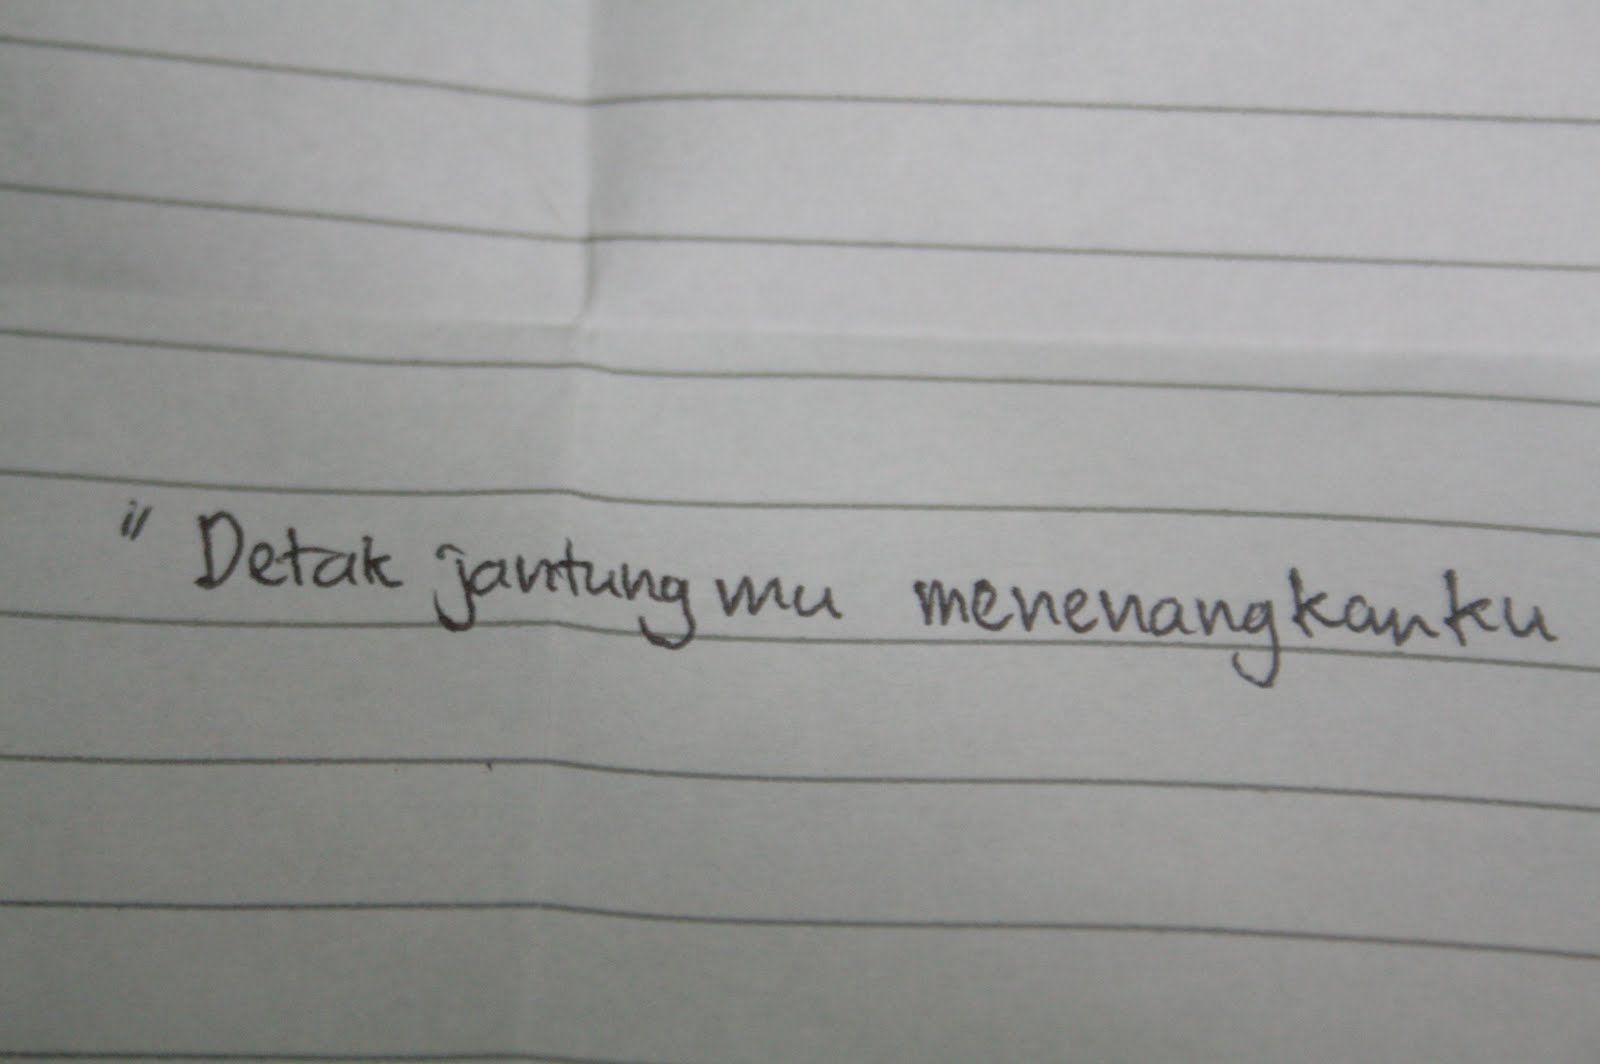 " Detak jantung mu menenangkanku